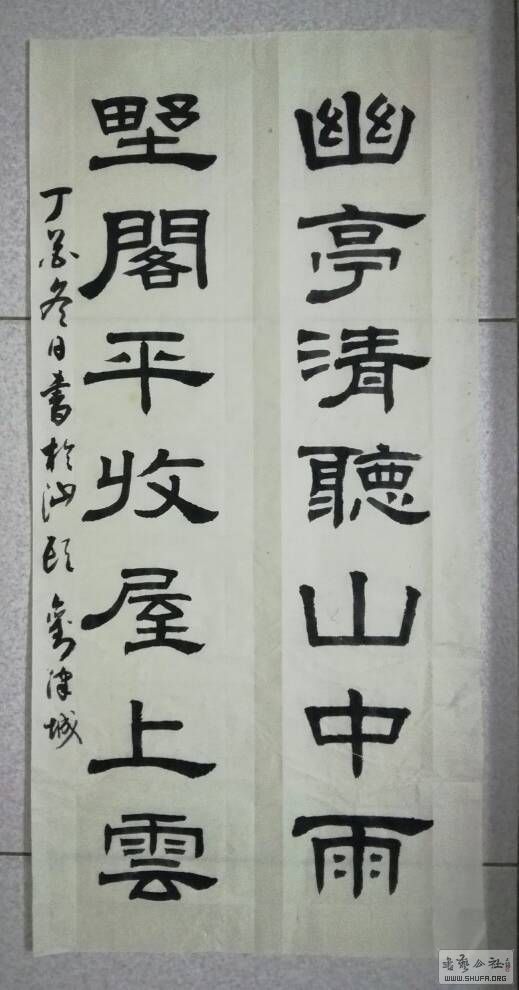 幽亭清聽山中雨
墅閣平收屋上雲
丁酉冬日書於汕頭 劉津城
書藝公社
WWW.SHUFA.ORG